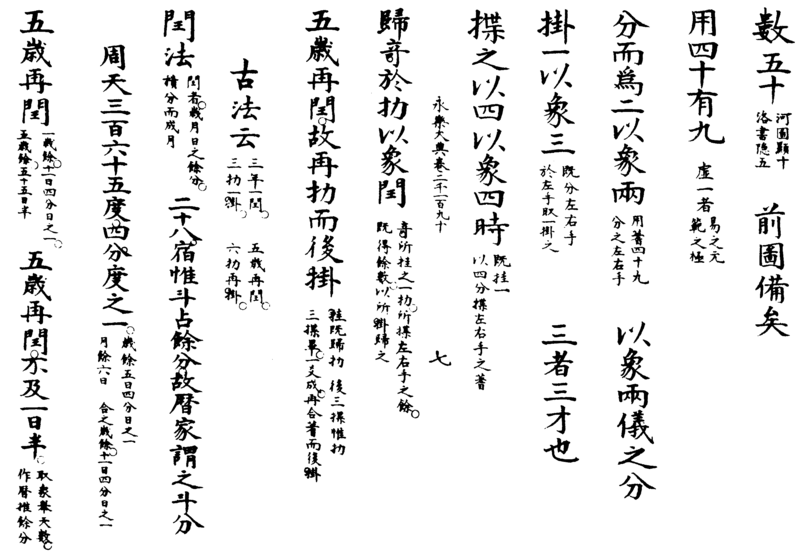 數五十 河圖顯十 洛書隱五 前圖備矣
用四十有九 虛一者易之元 範之極
分而爲二以象兩 用蓍四十九 分之左右手 以象兩儀之分
掛一以象三 旣分左右手 於左手取一掛之 三者三才也
揲之以四以象四時 旣挂一 以四分揲左右手之蓍
永樂大典卷二千一百九十 七
歸奇於扐以象閏 奇所挂之一扐所揲左右手之餘 旣得餘數以所掛歸之
五歲再閏故再扐而後掛 挂旣歸扐 後三揲惟扐 三揲畢一爻成再合蓍而後掛
古法云 三年一閏 三扐一掛 五歲再閏 六扐再掛
閏法 閏者歲月日之餘分 積分而成月 二十八宿惟斗占餘分故曆家謂之斗分
周天三百六十五度四分度之一 歲餘五日四分日之一 月餘六日 合之歲餘十一日四分日之一
五歲再閏 一歲餘十一日四分日之一 五歲餘五十五日半 五歲再閏不及一日半 取象舉天數 作曆推餘分